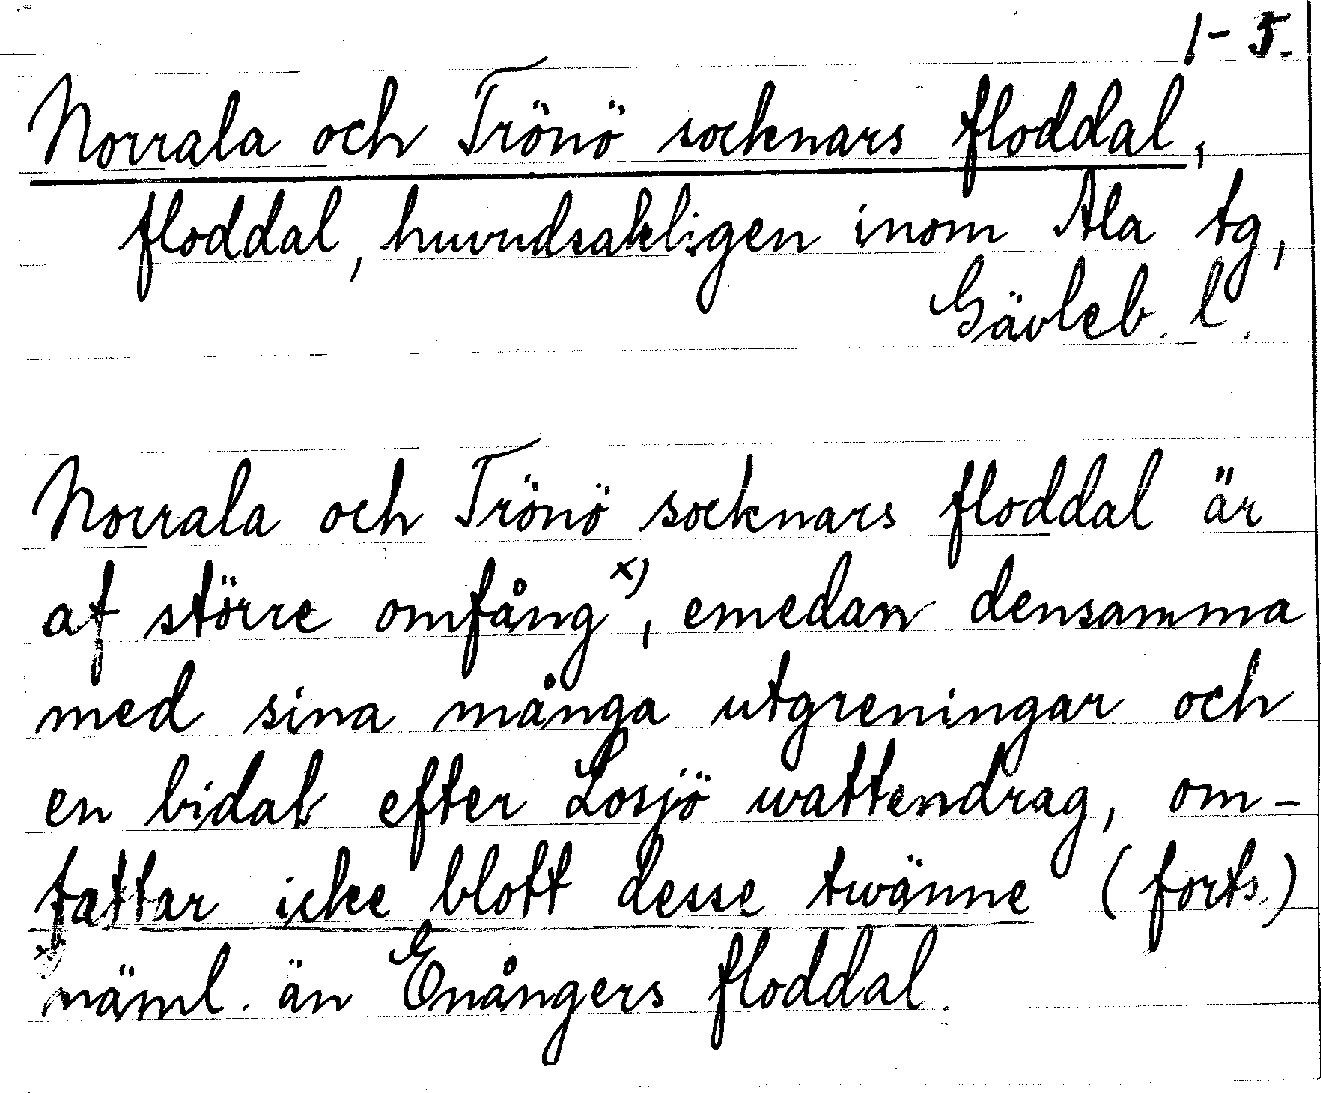 1-5.
Norrala och Trönö socknars floddal,
floddal, huvudsakligen inom Ala tg,
Gävleb. l.
Norrala och Trönö socknars floddal är
af större omfång x), emedan densamma
med sina många utgreningar och
en bidal efter Losjö wattendrag, om-
fattar icke blott desse twänne (forts.)
x näml. än Enångers floddal.